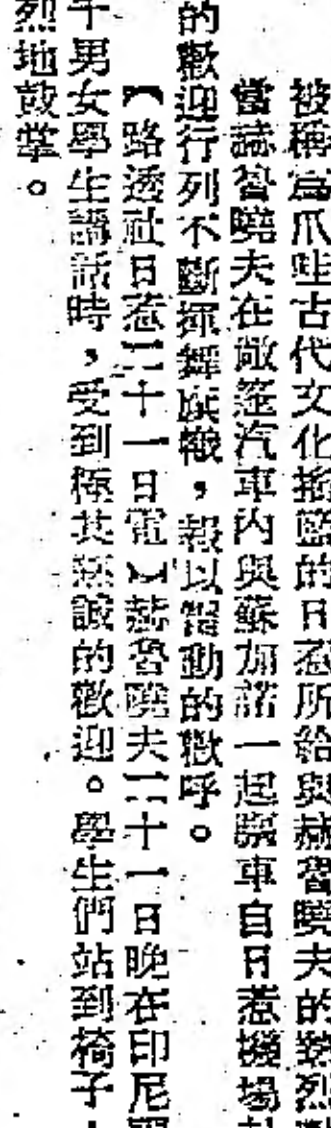 被稱為爪哇古代文化搖籃的日惹所給與赫魯曉夫的熱烈
當赫魯曉夫在敞篷汽車內與蘇加諾一起乘車自日惹機場
的歡迎行列不斷揮舞旗幟，報以雷動的歡呼。
【路透社日惹二十一日電】赫魯曉夫二十一日晚在印尼
千男女學生講話時，受到極其熱誠的歡迎。學生們站到椅子
烈地鼓掌。